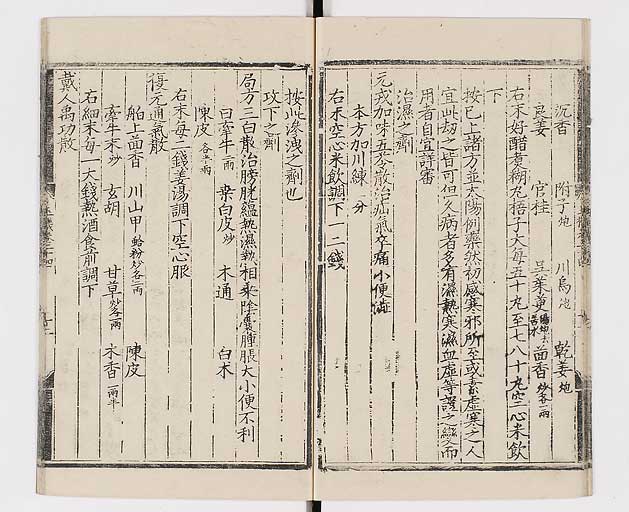 沉香　附子炮　川烏炮　乾姜炮
良姜　官桂　吳茱萸　茴香炒各一兩
右末好醋煑糊丸梧子大每五十丸至七八十丸空心米飲
下
按已上諸方並太陽例藥然初感寒邪所至或素虛寒之人
宜此劫之皆可但久病者多有濕熱寒濕血虛等證之變而
用者自宜詳審
治濕之劑
元戎加味五苓散治疝氣卒痛小便澁
本方加川練一分
右末空心米飲調下一二錢
按此滲洩之劑也
攻下之劑
局方三白散治膀胱蘊熱濕熱相乘陰囊腫脹大小便不利
白牽牛二兩　桑白皮炒　木通　白术
陳皮各半兩
右末每二錢姜湯調下空心服
復元通氣散
舶上茴香　川山甲蛤粉炒各二兩　陳皮
牽牛末炒　玄胡　甘草炒各一兩　木香一兩半
右細末每一大錢熱酒食前調下
戴人禹功散